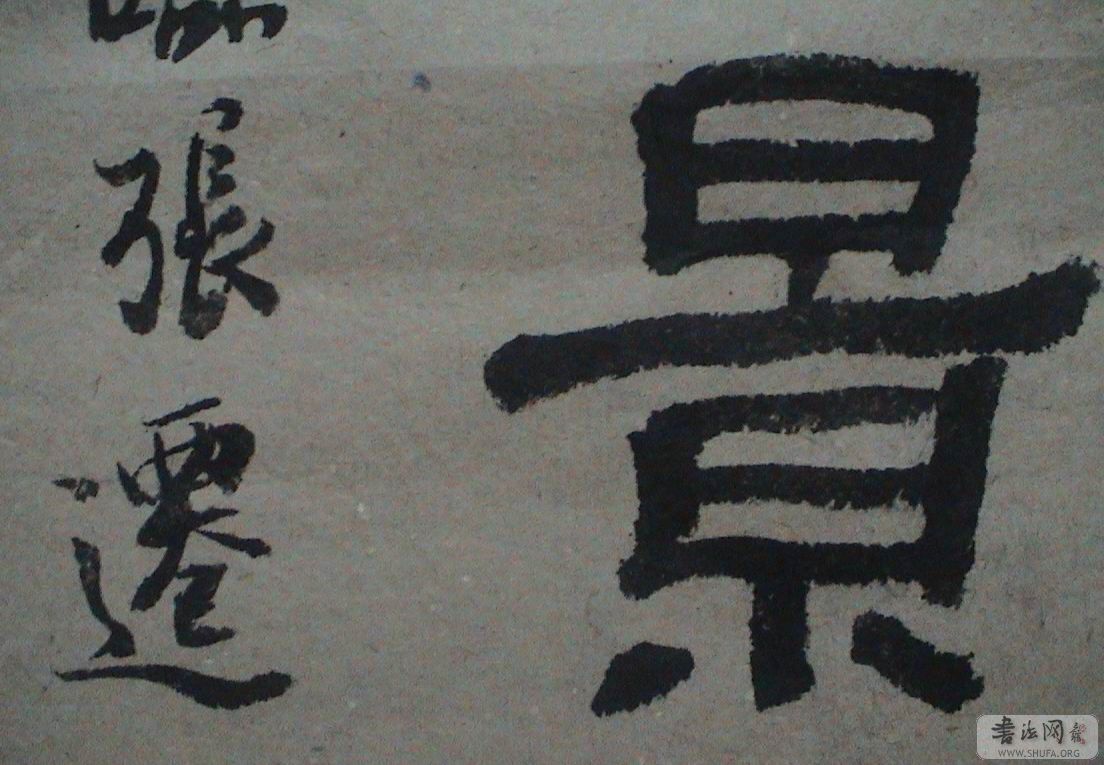 景
臨張遷
書法网
WWW.SHUFA.ORG